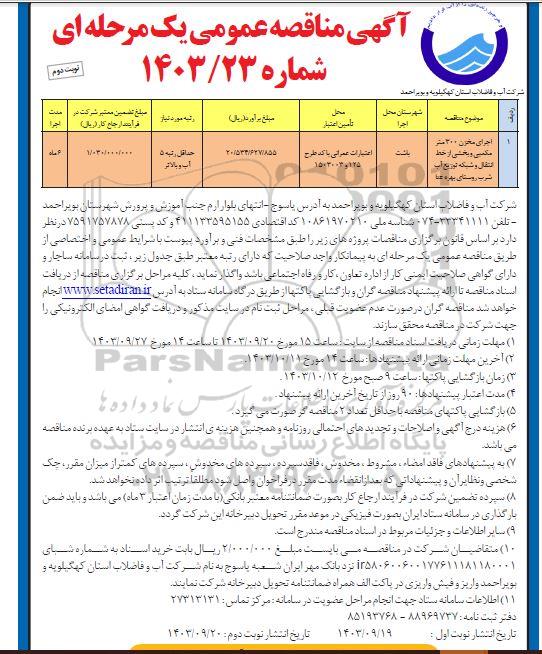 آگهی مناقصه عمومی یک مرحله ای
شماره ۱۴۰۳/۲۳
نوبت دوم
شرکت آب و فاضلاب استان کهگیلویه و بویراحمد
ردیف
موضوع مناقصه
شهرستان محل اجرا
محل تأمین اعتبار
مبلغ برآورد (ریال)
رتبه مورد نیاز
مبلغ تضمین معتبر شرکت در فرآیند ارجاع کار (ریال)
مدت اجرا
۱
اجرای مخزن ۳۰۰ متر مکعبی و بخشی از خط انتقال و شبکه توزیع آب شرب روستای بهره غنا
باشت
اعتبارات عمرانی با کد طرح ۱۲۵و۱۵۰۳۰۰۳
۲۰/۵۳۴/۶۲۷/۸۵۵
حداقل رتبه ۵ آب و بالاتر
۱/۰۳۰/۰۰۰/۰۰۰
۶ ماه
شرکت آب و فاضلاب استان کهگیلویه و بویراحمد به آدرس یاسوج -انتهای بلوار ارم جنب آموزش و پرورش شهرستان بویراحمد
- تلفن ۳۳۳۴۱۱۱۱-۰۷۴ شناسه ملی ۱۰۸۶۱۹۷۰۲۱۰ کد اقتصادی ۴۱۱۱۳۳۵۹۵۱۵۵ و کد پستی ۷۵۹۱۷۵۷۸۷۸ در نظر
دارد بر اساس قانون برگزاری مناقصات پروژه های زیر را طبق مشخصات فنی و برآورد پیوست با شرایط عمومی و اختصاصی از
طریق مناقصه عمومی یک مرحله ای به پیمانکار واجد صلاحیت که دارای رتبه معتبر طبق جدول زیر ، ثبت در سامانه ساجار و
دارای گواهی صلاحیت ایمنی کار از اداره تعاون ،کار و رفاه اجتماعی باشد واگذار نماید ، کلیه مراحل برگزاری مناقصه از دریافت
اسناد مناقصه تا ارائه پیشنهاد مناقصه گران و بازگشایی پاکتها از طریق درگاه سامانه ستاد به آدرس www.setadiran.ir انجام
خواهد شد مناقصه گران در صورت عدم عضویت قبلی ، مراحل ثبت نام در سایت مذکور و دریافت گواهی امضای الکترونیکی را
جهت شرکت در مناقصه محقق سازند.
۱) مهلت زمانی دریافت اسناد مناقصه از سایت : ساعت ۱۵ مورخ ۱۴۰۳/۰۹/۲۰ تا ساعت ۱۴ مورخ ۱۴۰۳/۰۹/۲۷
۲) آخرین مهلت زمانی ارائه پیشنهادها: ساعت ۱۴ مورخ ۱۴۰۳/۱۰/۱۱.
۳) زمان بازگشایی پاکتها: ساعت ۹ صبح مورخ ۱۴۰۳/۱۰/۱۲.
۴) مدت اعتبار پیشنهادها: ۹۰ روز از تاریخ آخرین ارائه پیشنهاد.
۵) بازگشایی پاکتهای مناقصه با حداقل تعداد ۲ مناقصه گر صورت می گیرد.
۶) هزینه درج آگهی و اصلاحات و تجدید های احتمالی روزنامه و همچنین هزینه ی انتشار در سایت ستاد به عهده برنده مناقصه
می باشد.
۷) به پیشنهادهای فاقد امضاء ، مشروط ، مخدوش ، فاقد سپرده ، سپرده های مخدوش ، سپرده های کمتر از میزان مقرر ، چک
شخصی و نظایر آن و پیشنهاداتی که بعد از انقضاء مدت مقرر در فراخوان واصل شود مطلقا ترتیب اثر داده نخواهد شد.
۸) سپرده تضمین شرکت در فرآیند ارجاع کار بصورت ضمانتنامه معتبر بانکی (با مدت زمان اعتبار ۳ ماه) می باشد و باید ضمن
بارگذاری در سامانه ستاد ایران بصورت فیزیکی در موعد مقرر تحویل دبیرخانه این شرکت گردد.
۹) سایر اطلاعات و جزئیات مربوط در اسناد مناقصه مندرج است.
۱۰) متقاضیان شرکت در مناقصه می بایست مبلغ ۲/۰۰۰/۰۰۰ ریال بابت خرید اسناد به شماره شبای
ir۵۸۰۶۰۰۶۰۰۱۷۷۶۱۱۱۸۱۱۸۰۰۰۱ نزد بانک مهر ایران شعبه یاسوج به نام شرکت آب و فاضلاب استان کهگیلویه و
بویراحمد واریز و فیش واریزی در پاکت الف همراه ضمانتنامه تحویل دبیرخانه شرکت نمایند.
۱۱) اطلاعات سامانه ستاد جهت انجام مراحل عضویت در سامانه : مرکز تماس : ۲۷۳۱۳۱۳۱
دفتر ثبت نامه : ۸۸۹۶۹۷۳۷ - ۸۵۱۹۳۷۶۸
تاریخ انتشار نوبت اول : ۱۴۰۳/۰۹/۱۹ تاریخ انتشار نوبت دوم : ۱۴۰۳/۰۹/۲۰